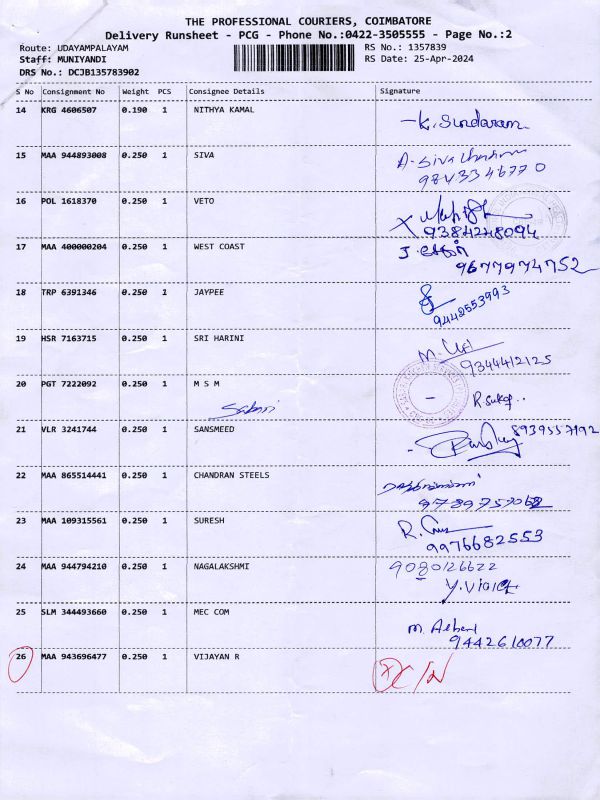 THE PROFESSIONAL COURIERS, COIMBATORE
Delivery Runsheet - PCG - Phone No.:0422-3505555 - Page No.:2
Route: UDAYAMPALAYAM RS No.: 1357839
Staff: MUNIYANDI RS Date: 25-Apr-2024
DRS No.: DCJB135783902
S No Consignment No Weight PCS Consignee Details Signature
14 KRG 4606507 0.190 1 NITHYA KAMAL K. Sundaram
15 MAA 944893008 0.250 1 SIVA
16 POL 1618370 0.250 1 VETO
9384248094
17 MAA 400000204 0.250 1 WEST COAST
9677974752
18 TRP 6391346 0.250 1 JAYPEE
9442553993
19 HSR 7163715 0.250 1 SRI HARINI
9344412125
20 PGT 7222092 0.250 1 M S M
21 VLR 3241744 0.250 1 SANSMEED 8939557192
22 MAA 865514441 0.250 1 CHANDRAN STEELS
23 MAA 109315561 0.250 1 SURESH
9976682553
24 MAA 944794210 0.250 1 NAGALAKSHMI 9080126622
25 SLM 344493660 0.250 1 MEC COM
9442610077
26 MAA 943696477 0.250 1 VIJAYAN R